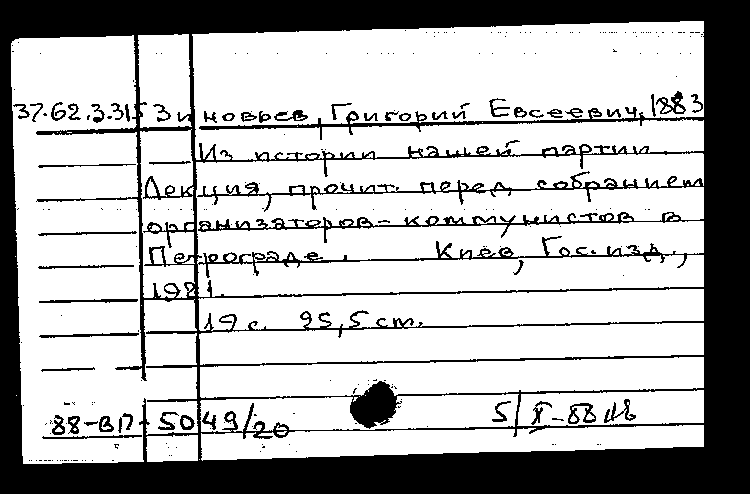 37.62.3.315 Зиновьев, Григорий Евсеевич, 1883
Из истории нашей партии.
Лекция, прочит. перед собранием
организаторов-коммунистов в
Петрограде. Киев, Гос. изд.,
1921.
19 с. 25,5 cm.
88-ВП-5049/20 5/X-88